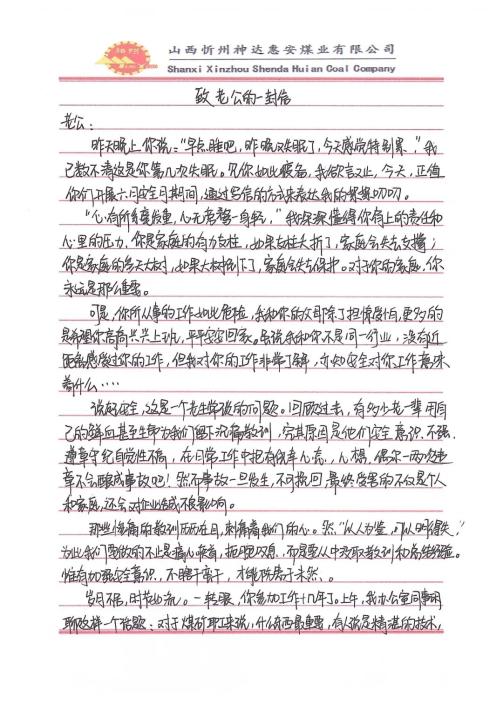 山西忻州神达惠安煤业有限公司
Shanxi Xinzhou Shenda Hui an Coal Company
致老公的一封信
老公：
昨天晚上，你说：“早点睡吧，昨晚又失眠了，今天感觉特别累。”我
已数不清这是你第几次失眠。见你如此疲惫，我欲言又止，今天，正值
你们开展六月安全月期间，通过写信的方式来表达我的絮絮叨叨。
“心有所系度重，心无旁骛一身轻，”我深深懂得你肩上的责任和
心里的压力，你是家庭的有力支柱，如果支柱夭折了，家庭会失去支撑；
你是家庭的参天大树，如果大树倒下了，家庭会失去保护。对于你的家庭，你
永远是那么重要。
可是，你所从事的工作如此危险，我和你的父母除了担惊
是希望你高高兴兴上班，平平安安回家。虽说我和你不是同一行业，没有近
距离感受过你的工作，但我对你的工作非常了解，亦知安全对你工作意味
着什么……
说好安全，这是一个老生常谈的问题。回顾过去，有多少老一辈用自
己的鲜血甚至生命为我们留下沉痛教训，究其原因是他们安全意识不强，
遵章守纪自觉性不高，在日常工作中把存侥幸心态，心想，偶尔一两次违
章不会酿成事故吧！然而事故一旦发生，不可挽回，最终伤害的不仅是个人
和家庭，还会对企业造成不良影响。
那些惨痛的教训历历在目，刺痛着我们的心。然“以人为鉴，可以明得失，”
为此我们要做的不止是痛心疾首，扼腕叹息，而是要从中汲取教训和总结经验。
惟有加强安全意识，不瞎干蛮干，才能防患于未然。
岁月不居，时节如流。一转眼，你参加工作十几年了。上午，我办公室同事闲
聊这样一个话题：对于煤矿职工来说，什么东西最重要，有人说是精湛的技术，